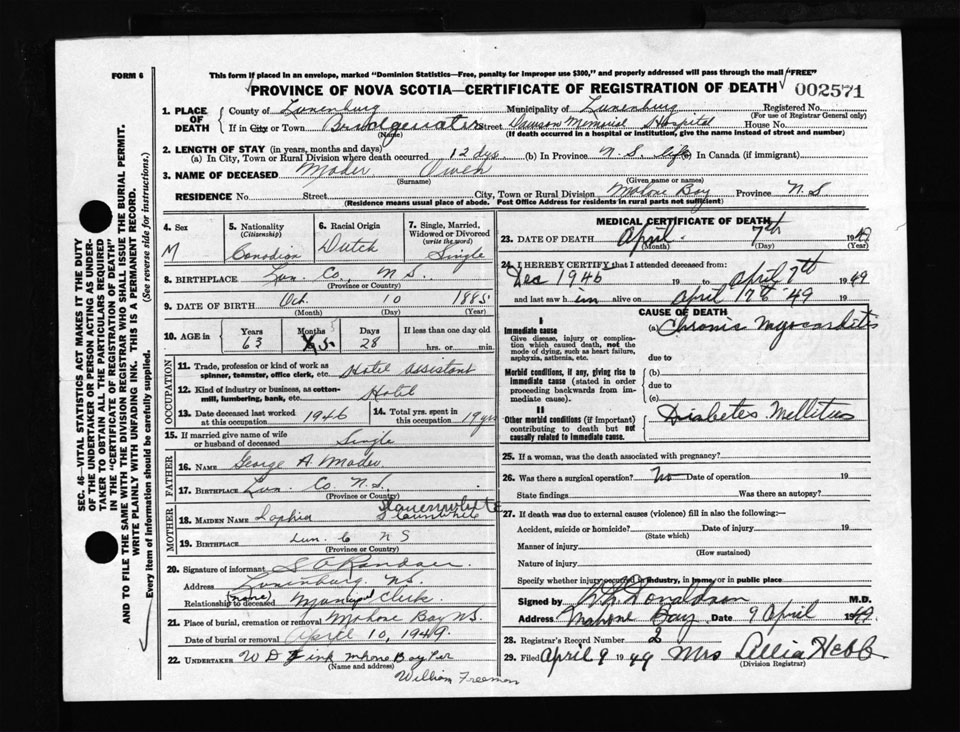 FORM 6
This form if placed in an envelope, marked "Dominion Statistics—Free, penalty for improper use $300," and properly addressed will pass through the mail "FREE"
PROVINCE OF NOVA SCOTIA—CERTIFICATE OF REGISTRATION OF DEATH
002571
1. PLACE OF DEATH
County of Lunenburg Municipality of Lunenburg Registered No.
(For use of Registrar General only)
If in City or Town Bridgewater Street Dawson Memorial Hospital House No.
(Name) (If death occurred in a hospital or institution, give the name instead of street and number)
2. LENGTH OF STAY (in years, months and days)
(a) In City, Town or Rural Division where death occurred 12 dys. (b) In Province N.S. life In Canada (if immigrant)
3. NAME OF DECEASED Mader Owen
(Surname) (Given name or names)
RESIDENCE No. Street City, Town or Rural Division Mahone Bay Province N.S
(Residence means usual place of abode. Post Office Address for residents in rural parts not sufficient)
4. Sex M
5. Nationality (Citizenship) Canadian
6. Racial Origin Dutch
7. Single, Married, Widowed or Divorced (write the word) Single
8. BIRTHPLACE Lun. Co. N.S.
(Province or Country)
9. DATE OF BIRTH Oct. 10 1885
(Month) (Day) (Year)
10. AGE in Years 63 Months 5 Days 28 If less than one day old hrs. or min.
OCCUPATION
11. Trade, profession or kind of work as spinner, teamster, office clerk, etc. Hotel assistant
12. Kind of industry or business, as cotton-mill, lumbering, bank, etc. Hotel
13. Date deceased last worked at this occupation 1946
14. Total yrs. spent in this occupation 19 yrs
15. If married give name of wife or husband of deceased Single
FATHER
16. NAME George A. Mader
17. BIRTHPLACE Lun. Co. N.S.
(Province or Country)
MOTHER
18. MAIDEN NAME Sophia
19. BIRTHPLACE Lun. C N S
(Province or Country)
20. Signature of informant
Address Lunenburg NS.
Relationship to deceased (none) Municipal Clerk
21. Place of burial, cremation or removal Mahone Bay N.S.
Date of burial or removal April 10, 1949.
22. UNDERTAKER W D Zink Mhone Bay Per
(Name and address)
William Freeman
MEDICAL CERTIFICATE OF DEATH
23. DATE OF DEATH April 7th 1949
(Month) (Day) (Year)
24. I HEREBY CERTIFY that I attended deceased from:
Dec 1946 19 to April 7th 1949
and last saw him alive on April 7th '49 19
CAUSE OF DEATH
I
Immediate cause
Give disease, injury or complication which caused death, not the mode of dying, such as heart failure, asphyxia, asthenia, etc.
(a) Chronic Myocarditis
due to
Morbid conditions, if any, giving rise to immediate cause (stated in order proceeding backwards from immediate cause).
(b)
due to
(c)
II
Other morbid conditions (if important) contributing to death but not causally related to immediate cause.
Diabetes Mellitus
25. If a woman, was the death associated with pregnancy?
26. Was there a surgical operation? No Date of operation 19
State findings Was there an autopsy?
27. If death was due to external causes (violence) fill in also the following:—
Accident, suicide or homicide? Date of injury 19
(State which)
Manner of injury
(How sustained)
Nature of injury
Specify whether injury occurred in industry, in home, or in public place
Signed by Donaldson M.D.
Address Mahone Bay Date 9 April 1949
28. Registrar's Record Number 2
29. Filed April 9 1949 Mrs Hebb
(Division Registrar)
SEC. 46—VITAL STATISTICS ACT MAKES IT THE DUTY
OF THE UNDERTAKER OR PERSON ACTING AS UNDER-
TAKER TO OBTAIN ALL THE PARTICULARS REQUIRED
IN THE "CERTIFICATE OF REGISTRATION OF DEATH"
AND TO FILE THE SAME WITH THE DIVISION REGISTRAR WHO SHALL ISSUE THE BURIAL PERMIT.
WRITE PLAINLY WITH UNFADING INK. THIS IS A PERMANENT RECORD.
Every item of information should be carefully supplied. (See reverse side for instructions.)